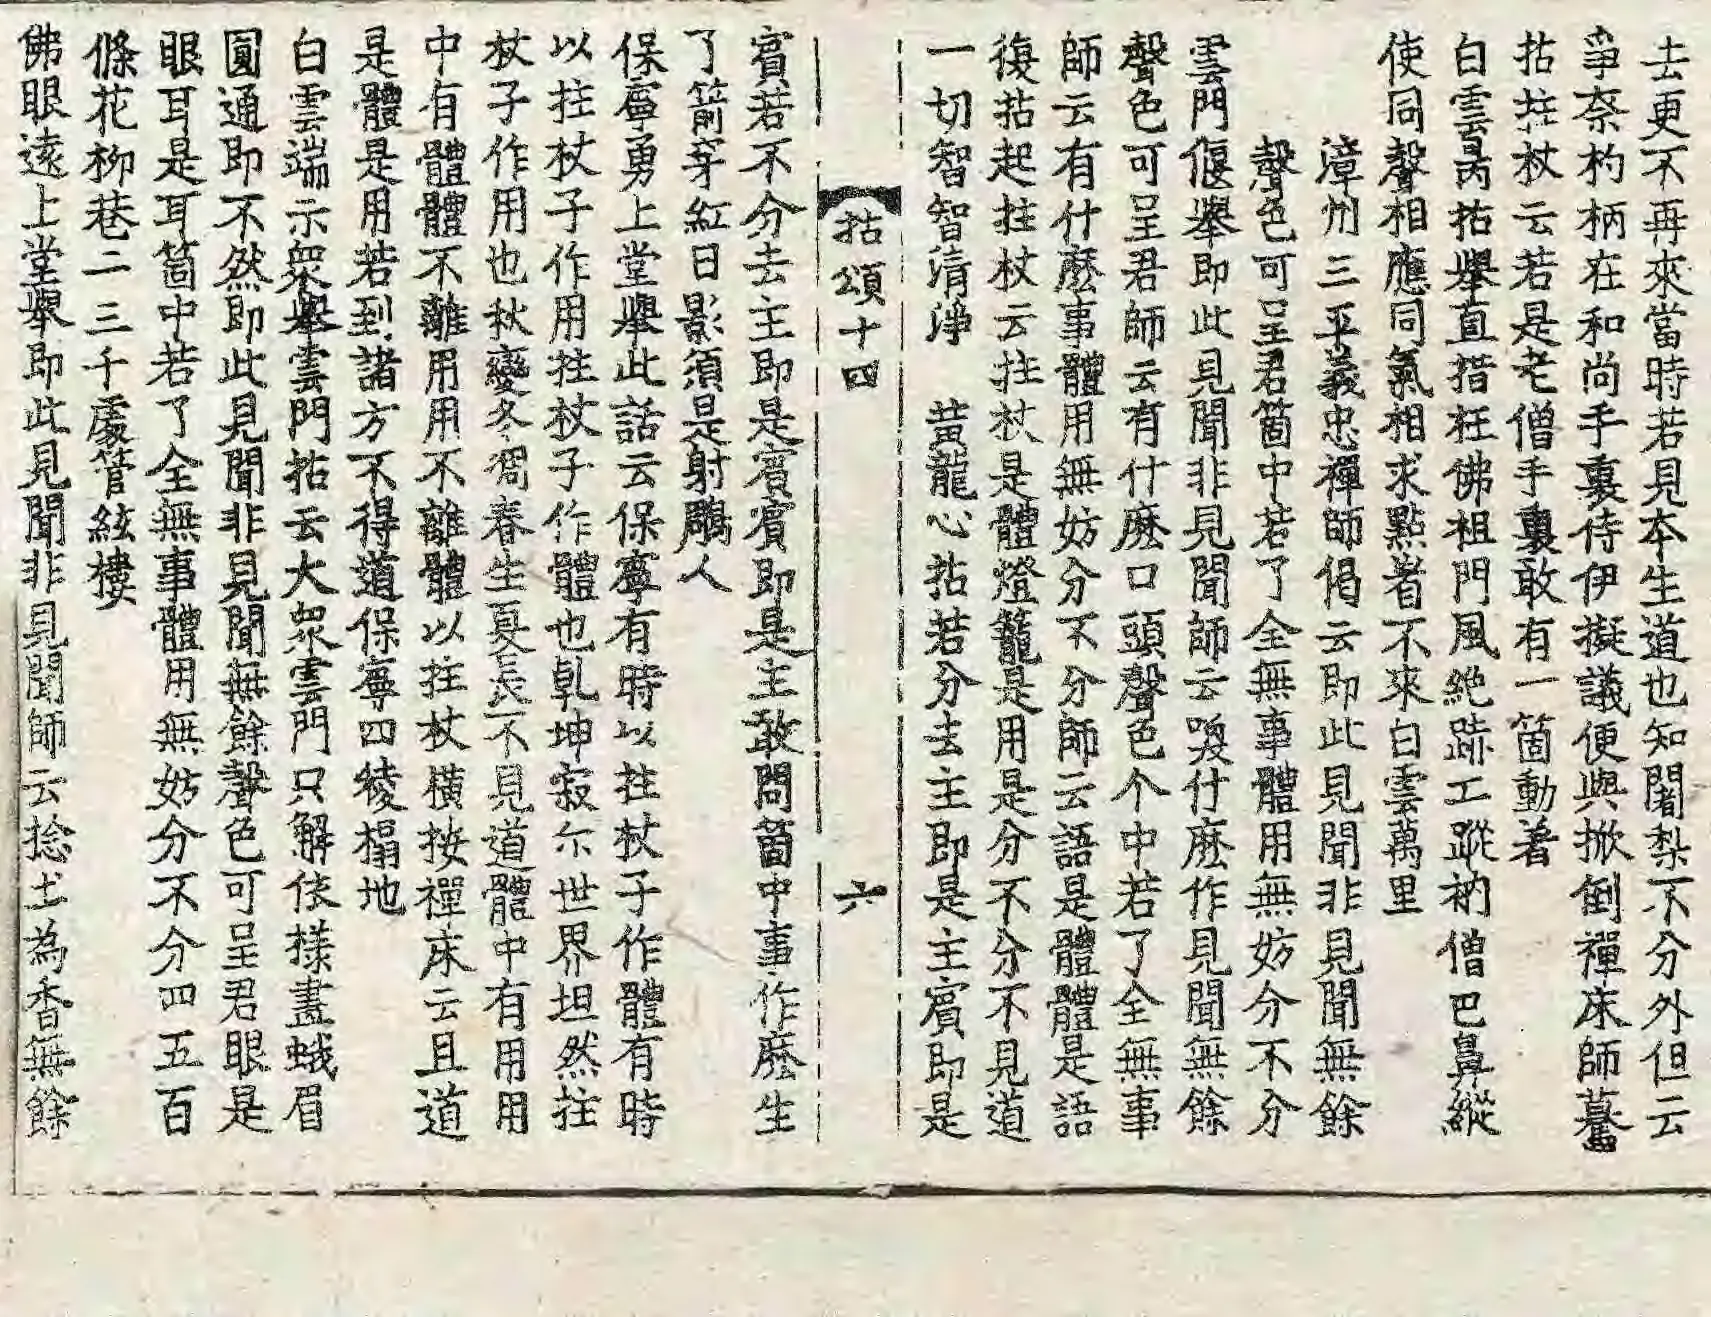 去更不再來當時若見本生道也知闍梨不分外但云
爭奈杓柄在和尚手裏待伊擬議便與掀倒禪床師驀
拈拄杖云若是老僧手裏敢有一箇動著
白雲昺拈舉直措枉佛祖門風絶蹤工蹤衲僧巴鼻縱
使同聲相應同氣相求點著不來白雲萬里
漳州三平義忠禪師偈云即此見聞非見聞無餘
聲色可呈君箇中若了全無事體用無妨分不分
雲門偃舉即此見聞非見聞師云喚什麽作見聞無餘
聲色可呈君師云有什麽口頭聲色个中若了全無事
師云有什麽事體用無妨分不分師云語是體體是語
復拈起拄杖云拄杖是體燈籠是用是分不分不見道
一切智智清淨 黄龍心拈若分去主即是主賓即是
拈頌十四 六
賓若不分去主即是賓賓即是主敢問箇中事作麽生
了箭穿紅日影須是射鵰人
保寧勇上堂舉此話云保寧有時以拄杖子作體有時
以拄杖子作用拄杖子作體也乹坤寂尒世界坦然拄
杖子作用也秋變冬凋春生夏長不見道體中有用用
中有體體不離用用不離體以拄杖橫按禪床云且道
是體是用若到諸方不得道保寧四稜榻地
白雲端示衆舉雲門拈云大衆雲門只解依㨾畫蛾眉
圓通即不然即此見聞非見聞無餘聲色可呈君眼是
眼耳是耳箇中若了全無事體用無妨分不分四五百
條花柳巷二三千處管絃樓
佛眼遠上堂舉即此見聞非見聞師云捻土為香無餘